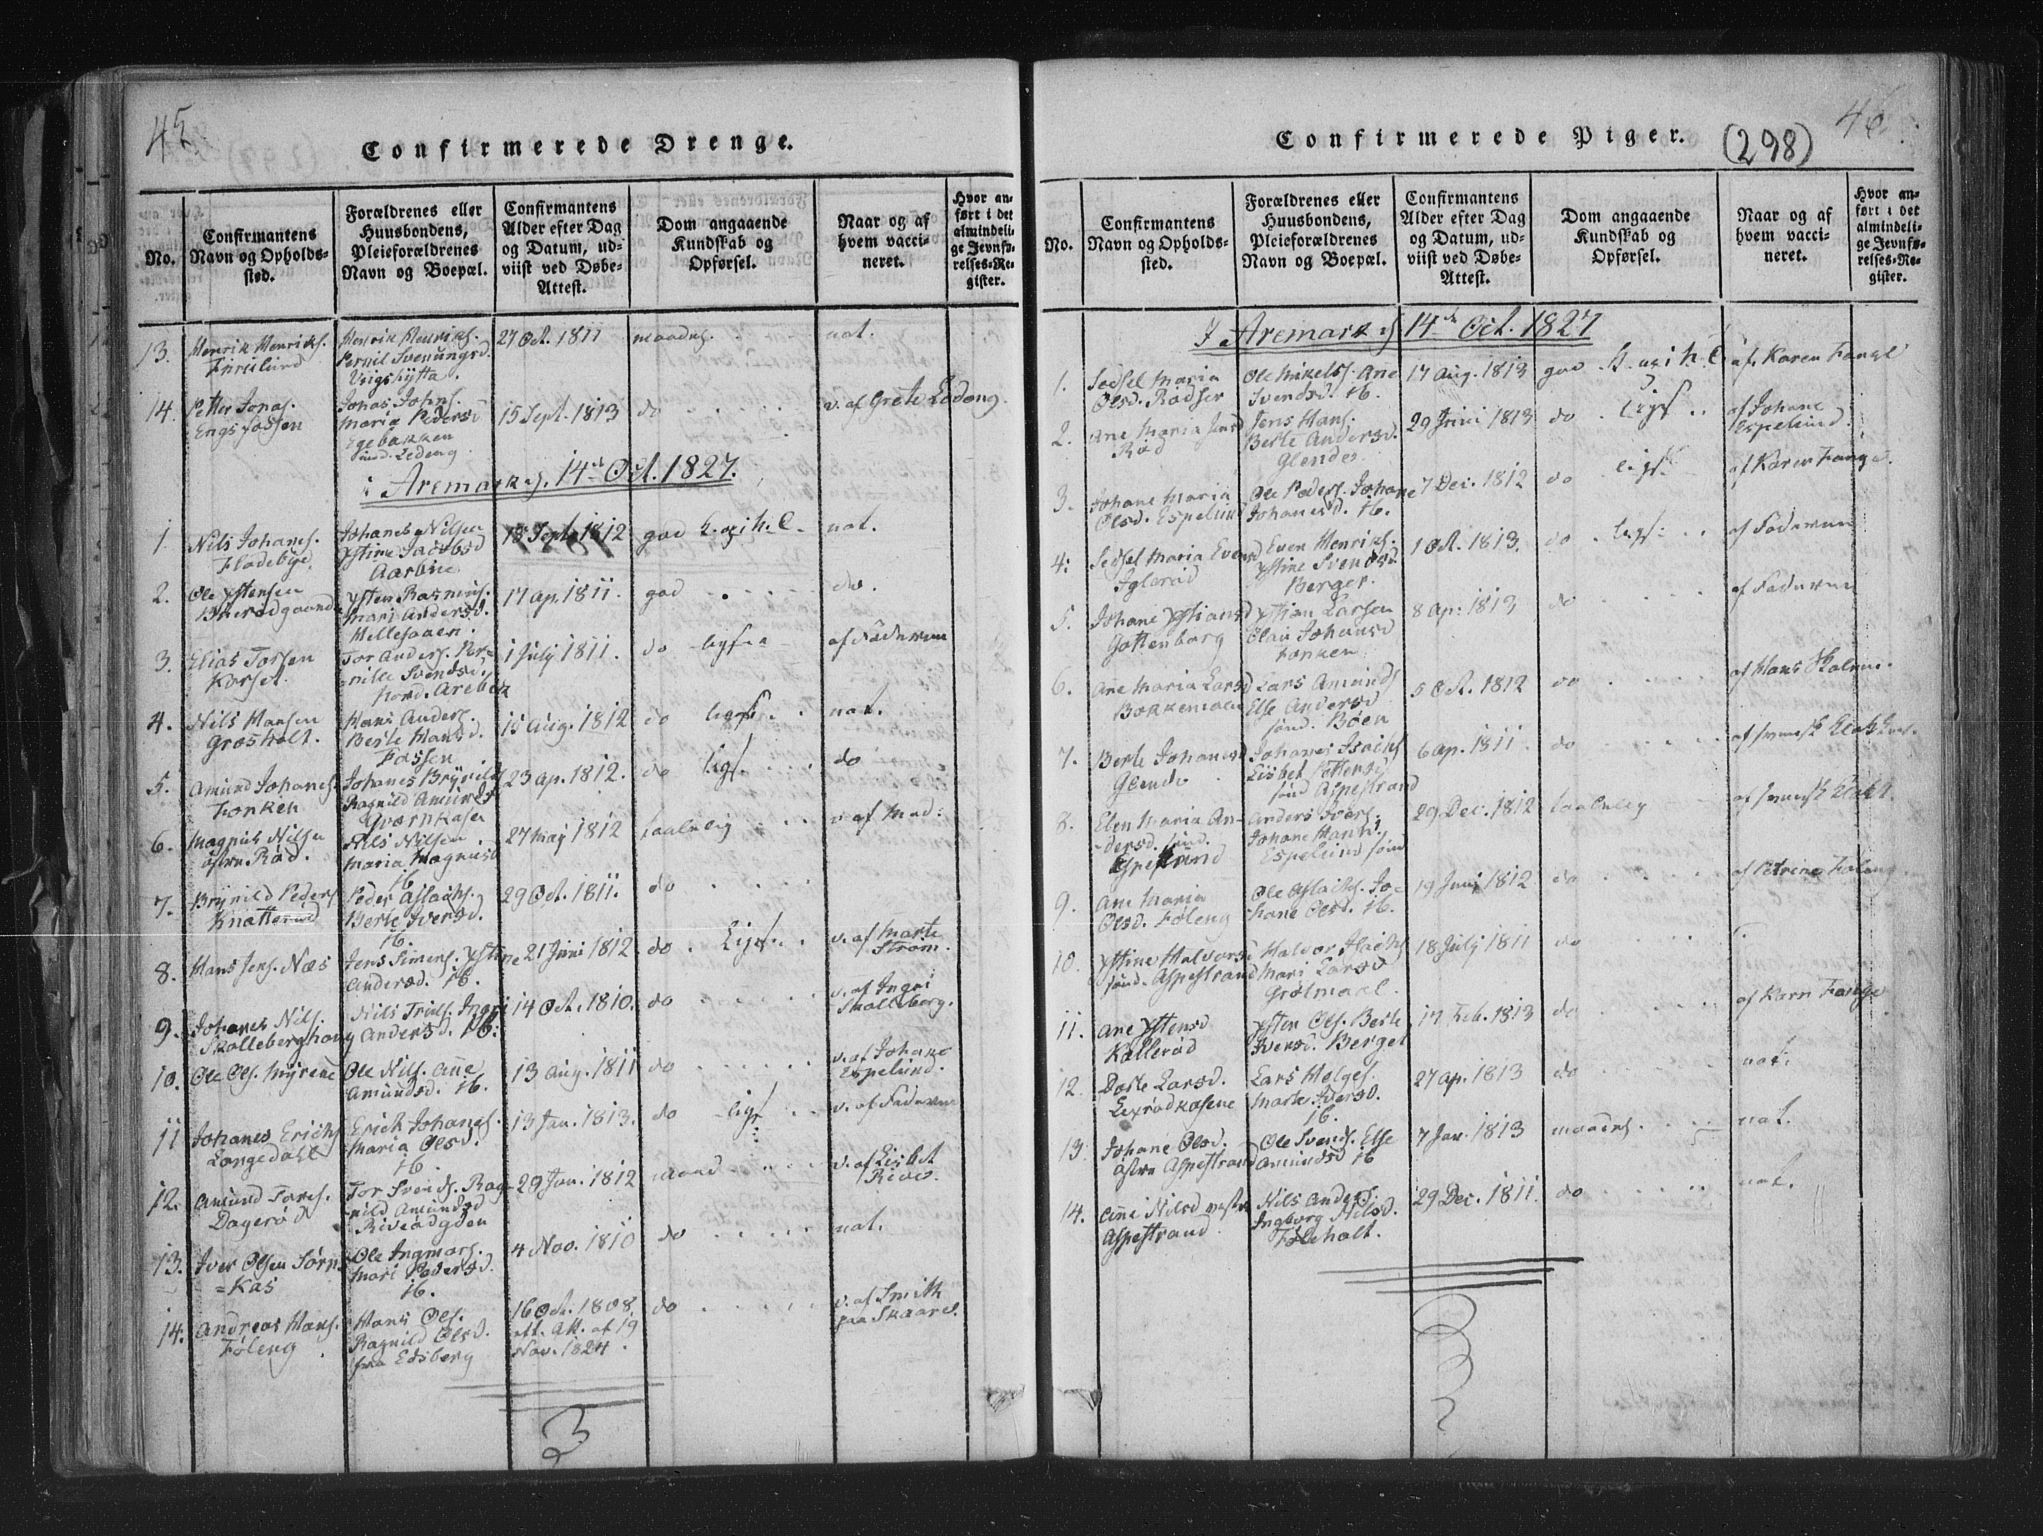 45.
Confirmerede Drenge.
No.
Confirmantens
Navn og Opholds-
sted.
Forældrenes eller
Huusbondens,
Pleieforældrenes
Navn og Boepæl.
Confirmantens
Alder efter Dag
og Datum, ud-
viist ved Døbe-
Attest.
Dom angaaende
Kundskab og
Opførsel.
Naar og af
hvem vacci-
neret.
Hvor an-
ført i det
almindeli-
ge Jevnfø-
relses-Re-
gister.
13. Henrik Henriks.
Henrik Henriks.
Pernil Svenungsd.
27 Oct. 1811
maadel.
nat.
14. Petter Jonas.
Engsjossen
Jonas Johns.
Maria Pedersd
Egebakken
sund. Ledeng.
15 Sept. 1813
do
v. af Grete Ledeng.
i Aremark d. 14de Oct. 1827.
1. Nils Johans.
Fladebye.
Johanes Nilsen
Aarbue
13 Sept. 1812
god
nat.
2. Ole Ystensen
Ysten Rasmus.
Mari Andersd.
Hellesaaen.
17 ap. 1811.
god
do.
3. Elias Torsen
Korset
Tor Anders. Per-
nille Svendsd.
nord. Arebek
1 July 1811.
do
af Faderen
4. Nils Hansen
Grosholt.
Hans Anders.
Berte Hansd.
Fossen
15 Aug. 1812
do ligs.
nat.
5. Amund Johanes.
Tonken
Johanes Brynilds
Ragnild Amunds
Qværnkasen
23 ap. 1812.
do ligs.
do
6. Magnus Nilsen
østre Rød.
Nils Nilsen
Maria Magnusd
ib.
27 May 1812
taalelig
v. af Mad:
7. Brynild Peders
Knatterud
Peder Aslachs.
Berte Iversd.
ib.
29 Oct. 1811.
do
8. Hans Jens. Næs
Jens Simens. Ystine
Andersd. ib.
21 Juni 1812.
do. Ligs.
v. af Marte
Strøm.
9. Johanes Nils.
Skolleberghaug
Nils Truls. Ingri
Andersd. ib.
14 Oct. 1810.
do
v. af Ingri
Skolleberg.
10. Ole Ols. Myrene
Ole Nils. Ane
Amundsd. ib.
13 Aug. 1811
do
v. af Johane
Espelund.
11 Johanes Erichs
Langedahl
Erich Johanes.
Maria Olsd.
ib.
13 Jan. 1813.
do ligs
v. af Faderen
12. Amund Tors.
Dagerød
Tor Svends. Rag-
nild Amundsd
29 Jan. 1812
maad
v. af Lisbet
13. Iver Olsen Sørns
=kas
Ole Ingmars.
Mari Pedersd.
ib.
4 Nov. 1810
do
nat.
14. Andreas Hans.
Føleng
Hans Ols.
Ragnild Olsd.
fra Edsberg
16 Oct. 1808.
att. Att. af 19
Nov. 1824.
do
v. af Smith
paa Skaare.
3
46.
Confirmerede Piger.
(298)
No.
Confirmantens
Navn og Opholds-
sted.
Forældrenes eller
Huusbondens,
Pleieforældrenes
Navn og Boepæl.
Confirmantens
Alder efter Dag
og Datum, ud-
viist ved Døbe-
Attest.
Dom angaaende
Kundskab og
Opførsel.
Naar og af
hvem vacci-
neret.
Hvor an-
ført i det
almindeli-
ge Jevnfø-
relses-Re-
gister.
I Aremark d 14de Oct. 1827
1. Sedsel Maria
Olsd. Rødser
Ole Mikels. Ane
Svendsd. ib.
17 Aug. 1813
god
af. Karen Fange
2. Ane Maria Jensd
Rød
Jens Hans.
Berte Andersd.
Glende
29 Juni 1813
do ligs
af Johane
Espelund.
3. Johane Maria
Olsd. Espelund
Ole Peders. Johane
Johanesd. ib.
7 Dec. 1812
do ligs
af Karen Fange.
4: Sedsel Maria Evensd
Iglerød
Even Henriks.
Ystine Svendsd.
Berger.
1 Oct. 1813.
do ligs:
af Faderen
5. Johane Ystiansd
Gottenborg
Ystian Larsen
Olau Johansd
Tonken
8 ap: 1813
do
af Faderen
6. Ane Maria Larsd
Lars Amunds
Else Andersd
sønd. Bøen
5 Oct. 1812
do
af Hans Skolen.
7. Berte Johanesd
Glende
Johanes Isachs
Lisbet Pettersd
sønd Aspestrand
6 ap. 1811.
do
8. Elen Maria An-
dersd. sønd.
Aspestrand
Anders Ivers.
Johane Hansd.
Espelund sønd
29 Dec. 1812
taalelig
9. Ane Maria
Olsd. Føleng
Ole Aslachs. Jo-
hane Olsd. ib.
19 Juni 1812
do
af Petrine Føleng
10. Ystine Halvorsd
sønd. Aspestrand
Halvor Isachs
Mari Larsd
Grølmaal.
18 July 1811
do
11. Ane Ystensd
Kallerød
Ysten Ols. Berte
Iversd. Berget
17 Feb. 1813
do
af Karn Fange
12. Dorte Larsd.
Lexrødkasene
Lars Helges.
Marte Iversd.
ib.
27 ap. 1813
do
nat.
13. Johane Olsd.
østre Aspestrand
Ole Svends. Else
Amundsd ib
7 Jan. 1813
maadel.
nat.
14. Ane Nilsd vestre
Aspestrand
Nils Anders
Ingborg Nilsd.
Føleholt.
29 Dec. 1811.
do
nat.